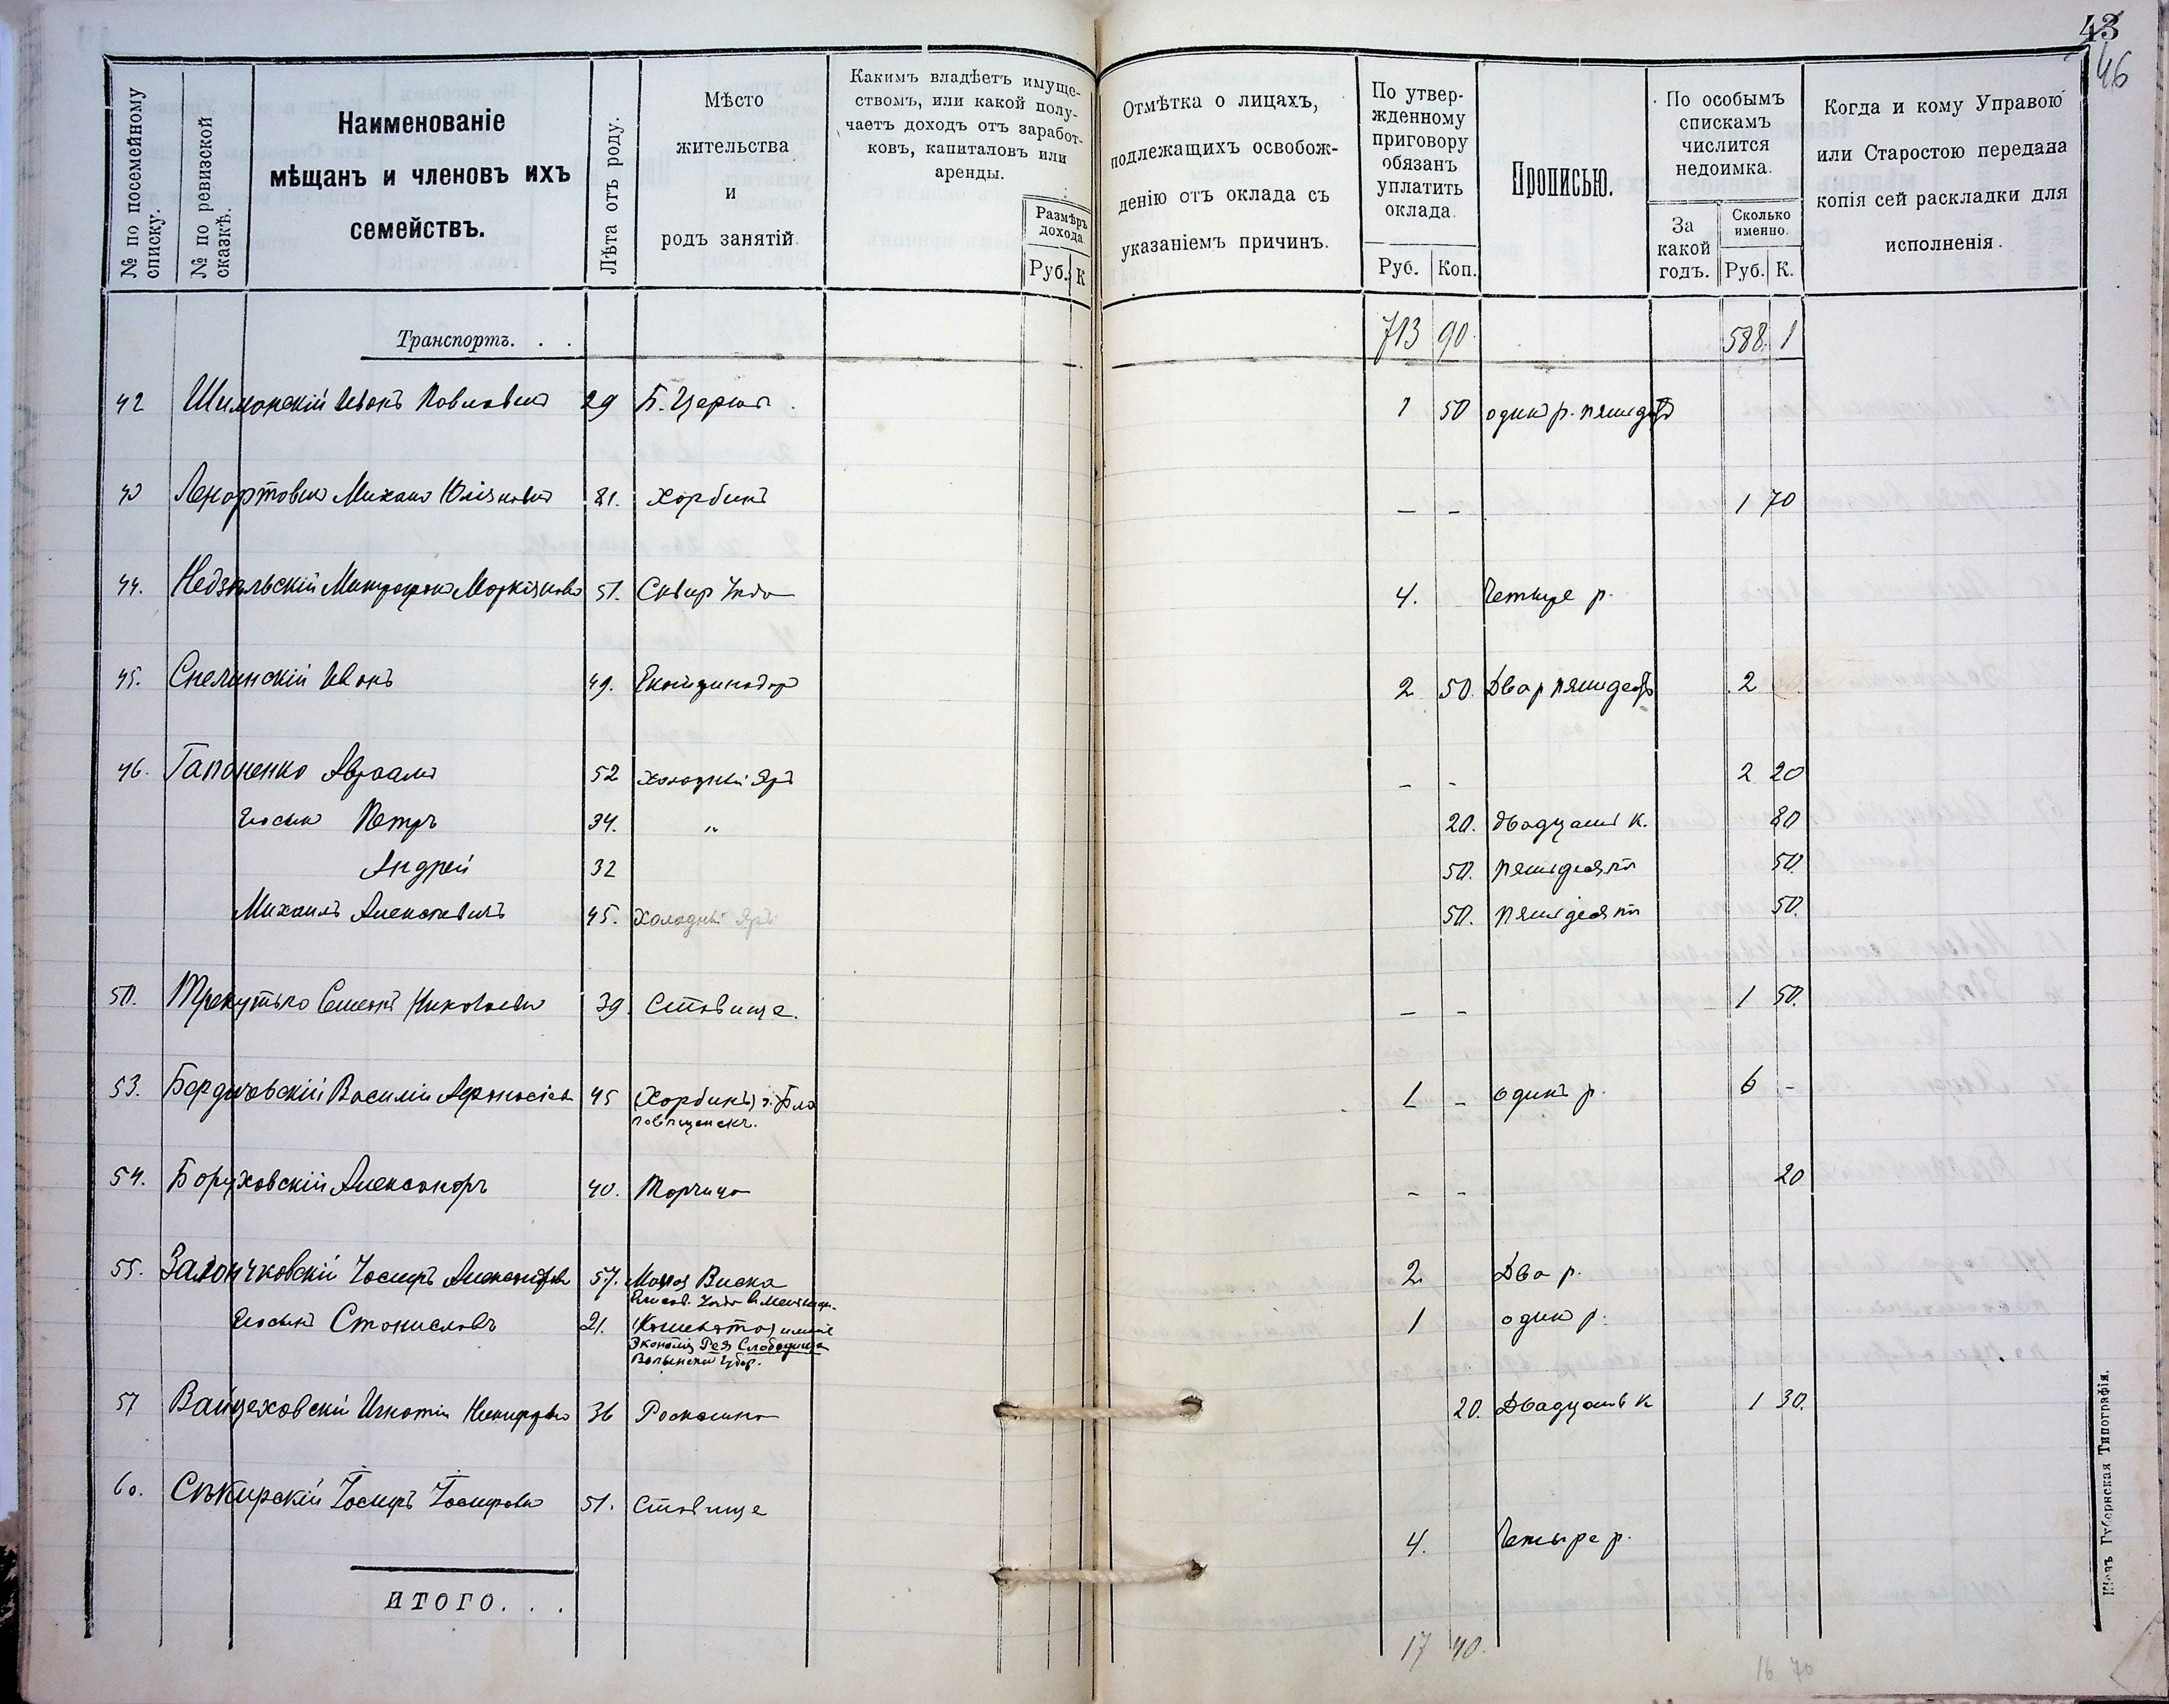 43
46
№ по посемейному списку.
№ по ревизской сказкѣ.
Наименованіе
мѣщанъ и членовъ ихъ
семействъ.
Лѣта отъ роду.
Мѣсто
жительства
и
родъ занятій.
Какимъ владѣетъ имуще-
ствомъ, или какой полу-
чаетъ доходъ отъ заработ-
ковъ, капиталовъ или
аренды.
Размѣръ
дохода
Руб. К
Отмѣтка о лицахъ,
подлежащихъ освобож-
денію отъ оклада съ
указаніемъ причинъ.
По утвер-
жденному
приговору
обязанъ
уплатить
оклада.
Руб. Коп.
Прописью.
По особымъ
спискамъ
числится
недоимка.
За
какой
годъ.
Сколько
именно.
Руб. К.
Когда и кому Управою
или Старостою передана
копія сей раскладки для
исполненія.
Транспортъ. . . 713 90 588. 1
42 Шиманскій Иванъ Павловичъ 29 Б. Церковь 1 50 один р. пятьдес
43 Ленартович Михаил 81. Харбинъ – – 1 70
44. Недзѣльскій Митрофан 51. Сквир 4. Четыре р.
45. Снежинскій Иванъ 49. Екатеринодар 2 50. Два р пятьдес 2
46. Гапоненко Авраамъ 52 Холодній Яръ – – 2 20
его сын Петръ 34. „ 20. двадцать к. 80
Андрей 32 50. пятьдесят 50.
Михаилъ Алексѣевичъ 45. Холодній Яръ 50. пятьдесят 50.
50. Семенъ Николаевъ 39 Ставище. – – 1 50.
53. Бердичовскій Василій 45 (Харбинъ) г. Бла
говѣщенскъ. 1 – одинъ р. 6 –
54. Боруховскій Александръ 40. Торчица – – 20
55. Заіончковскій Іосифъ Александров 57. Малая Виска
2 Два р.
его сынъ Станиславъ 21. 1 один р.
Экономія Слободища
Волынской губер.
57 Войцеховскій Игнатій Никифоров 36 Роскошна 20. Двадцать к 1 30.
60. Сѣкирскій Іосифъ Іосифовъ 51. Ставище 4. Четыре р.
ИТОГО. . . 17 40. 16 70
Кіевъ Губернская Типографія.